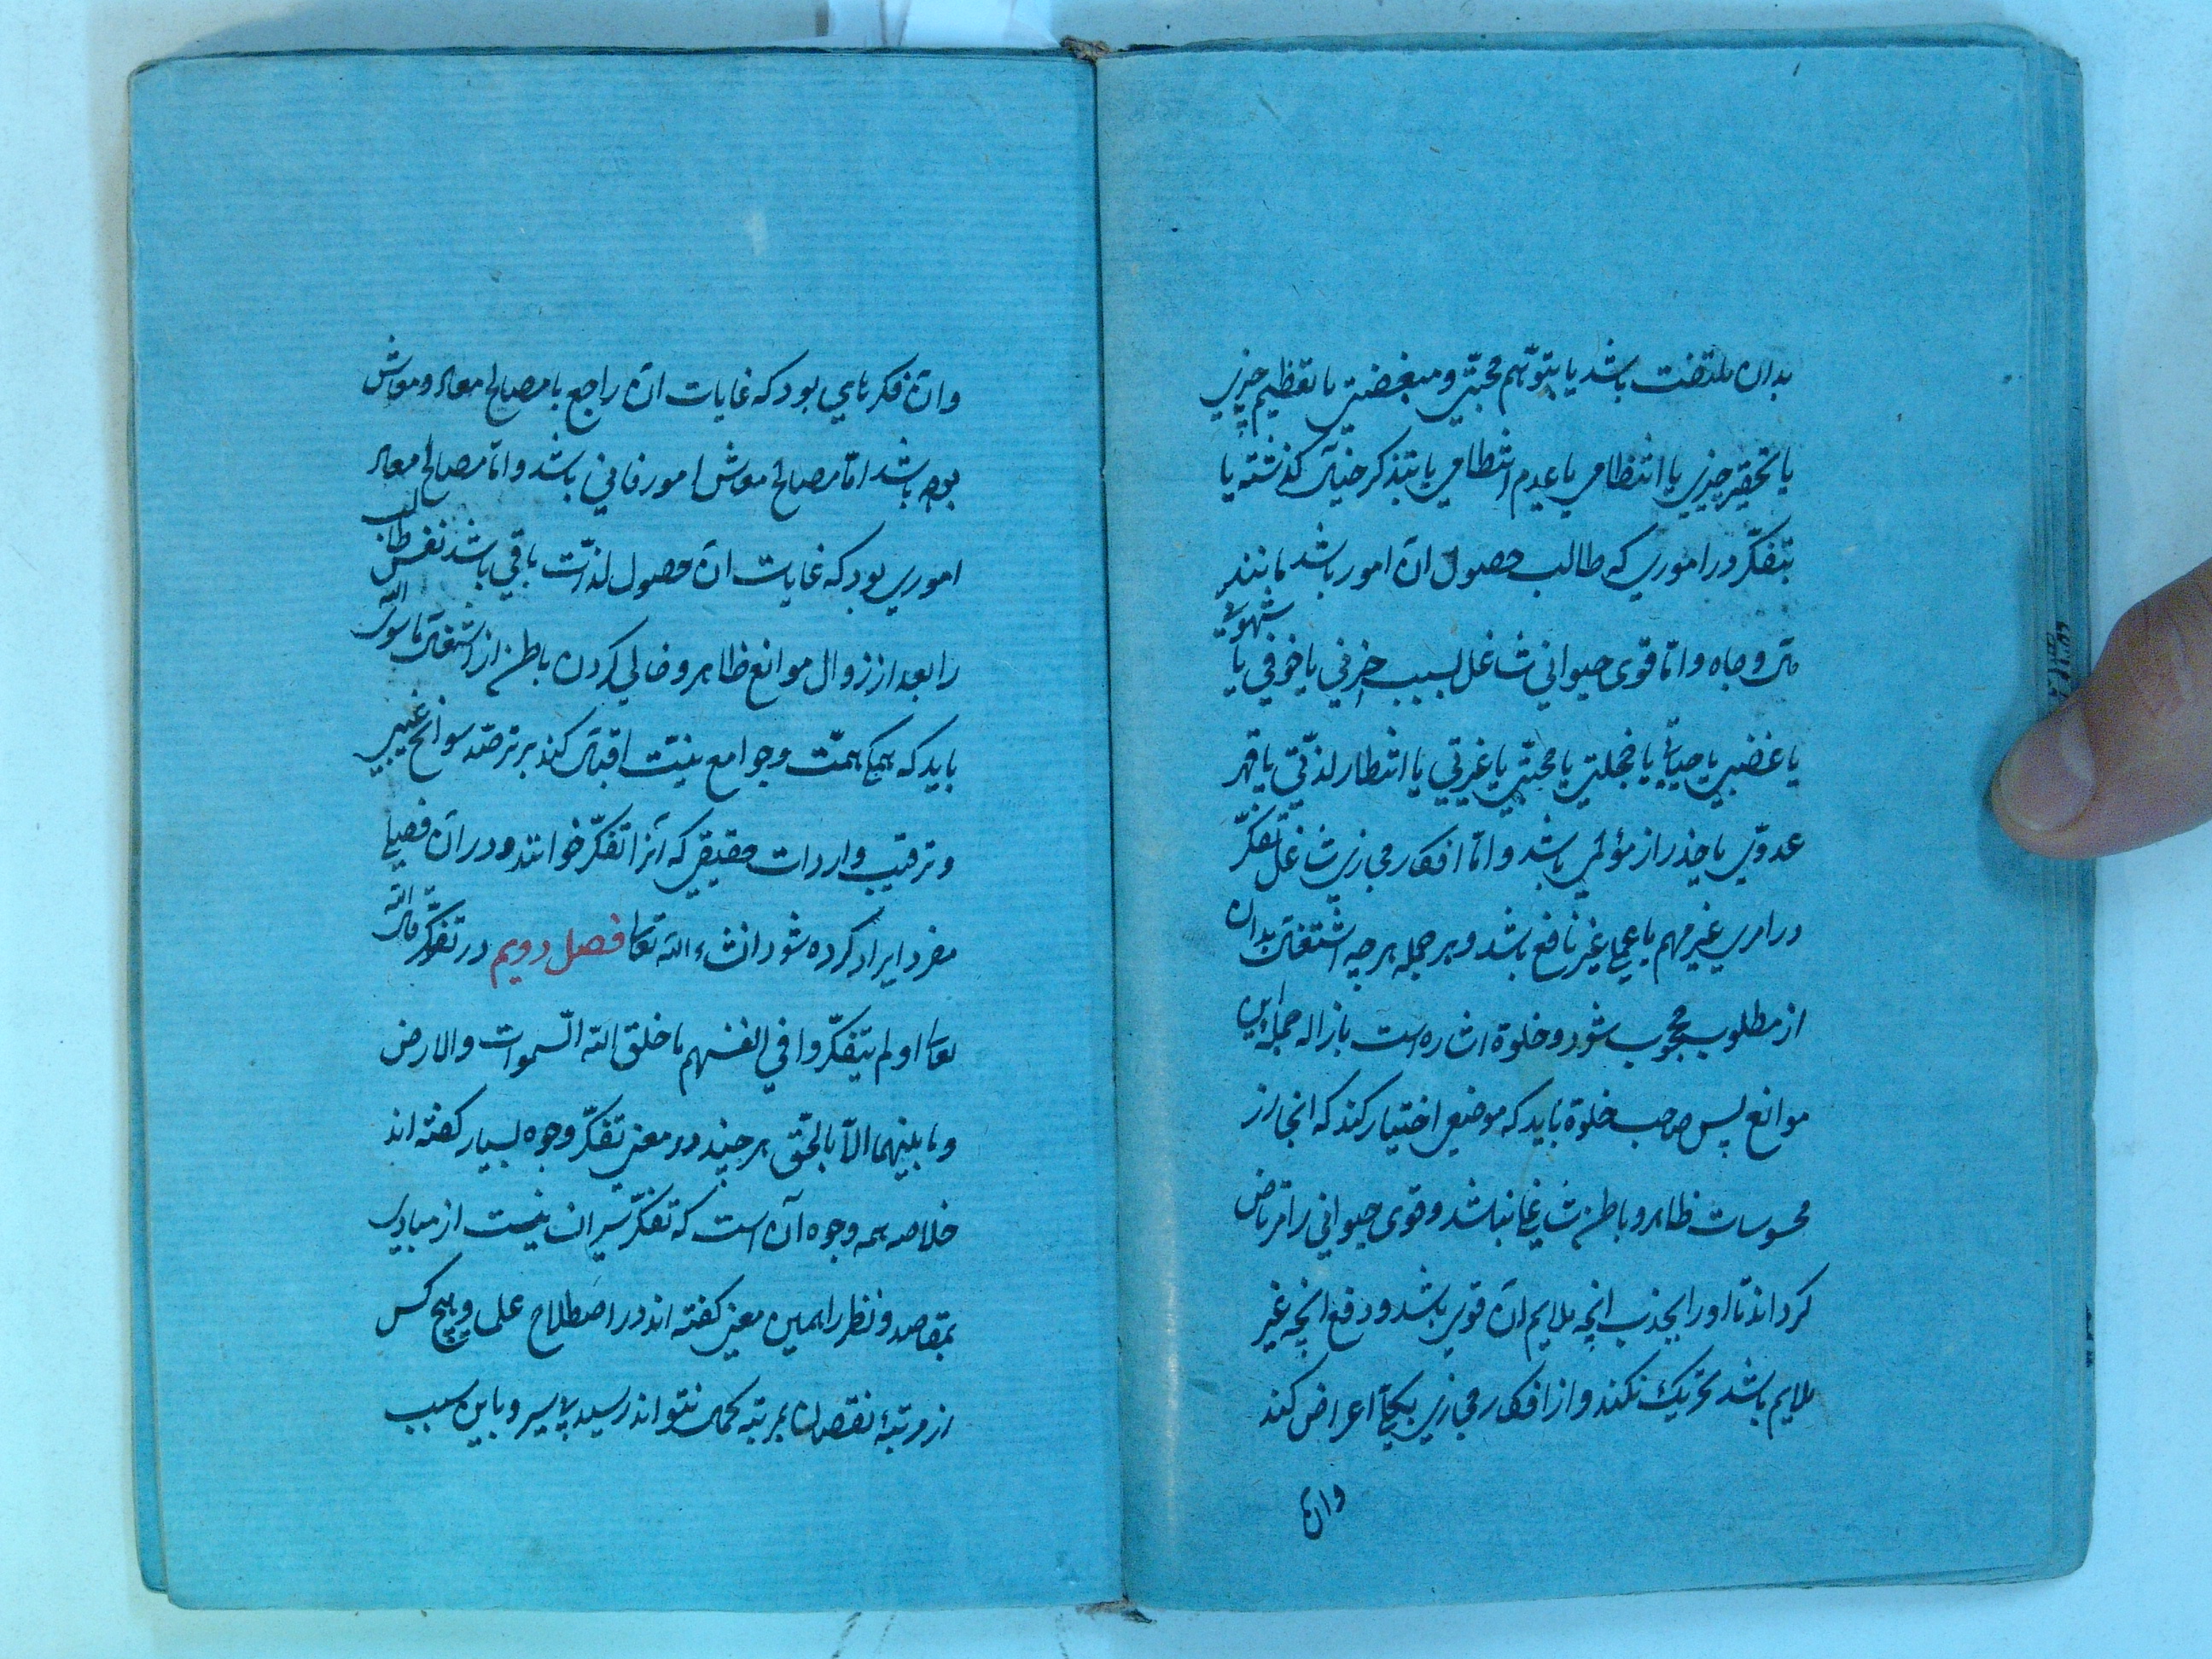 بدان ملتفت باشد یا بتوهّم محبّتی و مبغضتی یا تعظیم چیزی
یا تحقیر چیزی یا انتظامی یا عدم انتظامی یا بتذکر حال گذشته یا
بتفکّر در اموری که طالب حصول آن امور باشد مانند
مال و جاه و امّا قوی حیوانی شاغل بسبب حزنی یا خوفی یا شهوتی
یا غضبی یا خیانتی یا خجلتی یا محبّتی یا غیرتی یا انتظار لذّتی یا قهر
عدوّی یا حذر از مؤلمی باشد و امّا افکار مجازی شاغل تفکّر
در امری غیر مهم یا علمی غیر نافع باشد و بر جمله هر چه اشتغال بدان
از مطلوب محجوب شود و خلوة اشاره است بازاله جمله این
موانع پس صاحب خلوة باید که موضعی اختیار کند که انجا از
محسوسات ظاهر و باطن شاغلی نباشد و قوی حیوانی را مرتاض
کرداند تا او را بجذب انچه ملایم آن قوی باشد و دفع انچه غیر
ملایم باشد تحریک نکند و از افکار مجازی بکلّی اعراض کند
وان
وان فکرهای بود که غایات ان راجع با مصالح معاد و معاش
بوده باشد امّا مصالح معاش امور فانی باشد و امّا مصالح معاد
اموری بود که غایات ان حصول لذّات باقی باشد نفس طالب
را بعد از زوال موانع ظاهر و خالی کردن باطن از اشتغال ماسوی الله
باید که بهمگی همّت و جوامع نیّت اقبال کند بر ترصّد سوانح غیبی
و ترقب واردات حقیقی که آنرا تفکّر خوانند و در آن فصلی
مفرد ایراد کرده شود انشاء الله تعالی فصل دویم در تفکّر قال الله
تعالی اولم یتفکّروا فی انفسهم ما خلق الله السّموات والارض
وما بینهما الّا بالحقّ هر چند در معنی تفکّر وجوه بسیار کفته اند
خلاصه همه وجوه آن است که تفکّر سیر انسانیست از مبادی
بمقاصد و نظر را همین معنی کفته اند در اصطلاح علما و هیچ کس
از مرتبۀ نقصان بمرتبه کمال نتواند رسید بی سیر و باین سبب